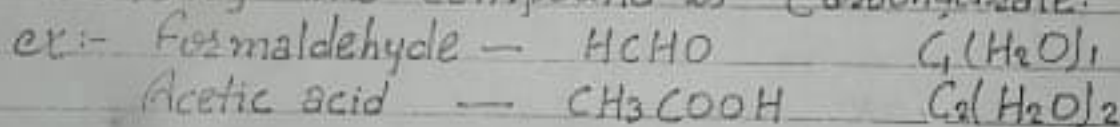 ex:- Formaldehyde — HCHO C1(H2O)1
Acetic acid — CH3COOH C2(H2O)2